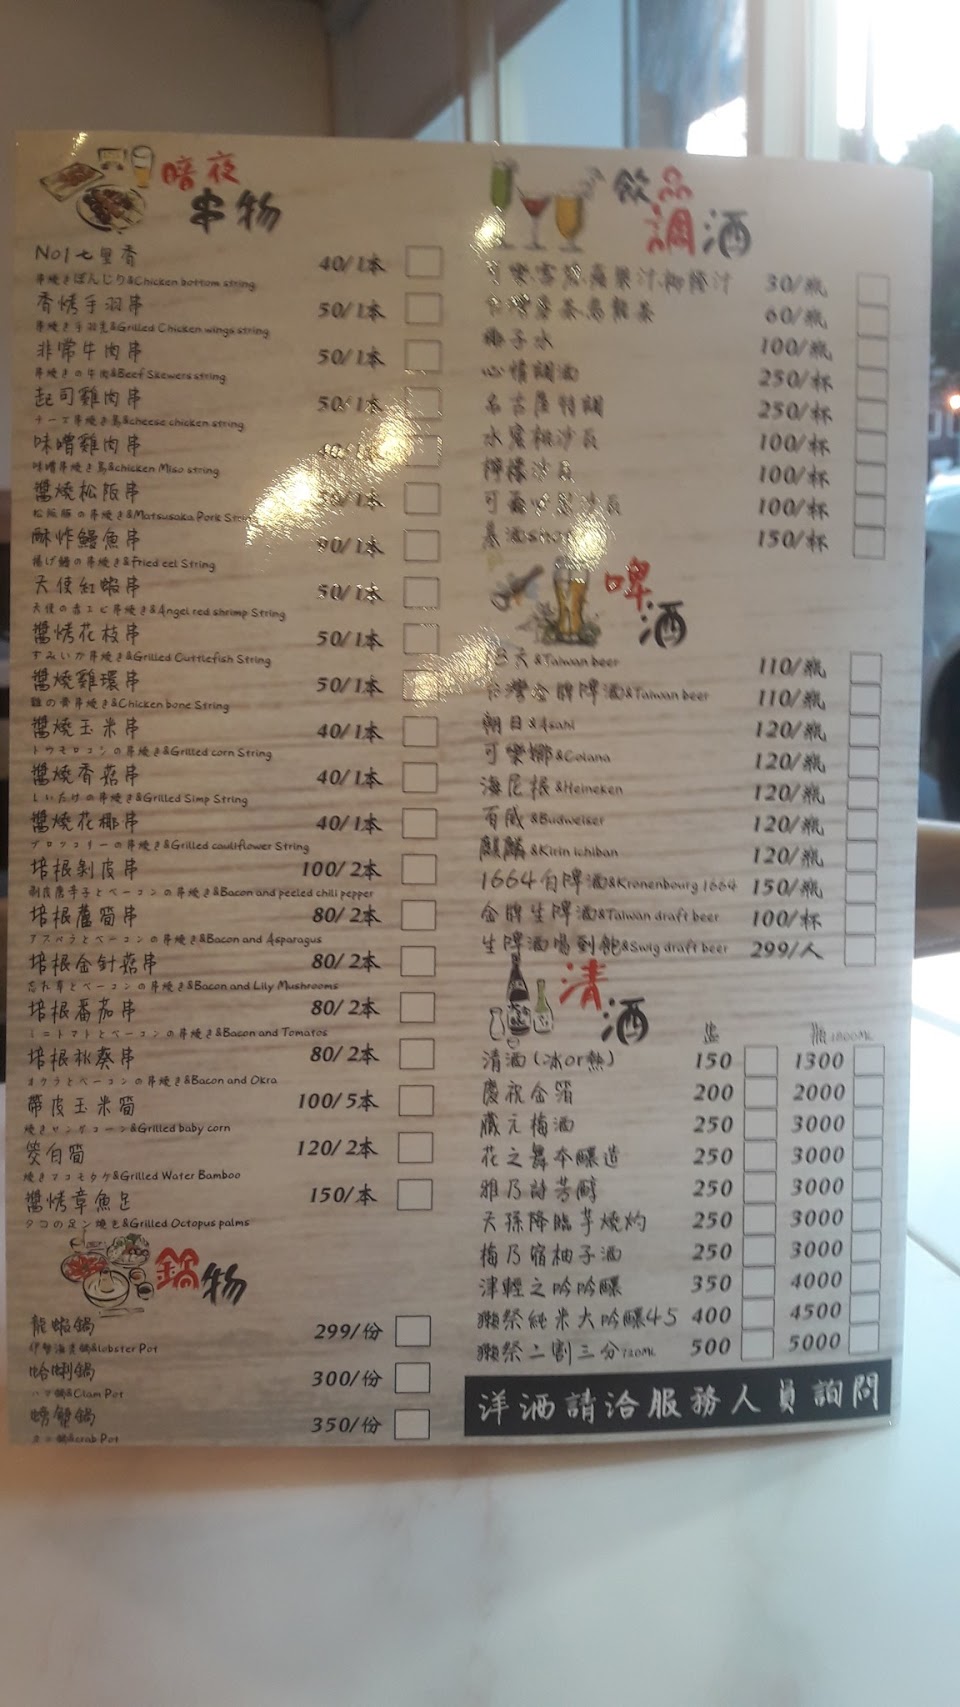 暗夜
串物
No1七里香 40/1本
串焼きぼんじり&Chicken bottom string
香烤手羽串 50/1本
串焼き手羽先&Grilled Chicken wings string
非常牛肉串 50/1本
串焼きの牛肉&Beef Skewers string
起司雞肉串 50/1本
チーズ串焼き鳥&cheese chicken string
味噌雞肉串
味噌串焼き鳥&chicken Miso string
醬燒松阪串
松阪豚の串焼き&Matsusaka Pork String
酥炸鰻魚串 90/1本
揚げ鰻の串焼き&Fried eel String
天使紅蝦串 50/1本
天使の赤エビ串焼き&Angel red shrimp String
醬烤花枝串 50/1本
すみいか串焼き&Grilled Cuttlefish String
醬燒雞環串 50/1本
雞の骨串焼き&Chicken bone String
醬燒玉米串 40/1本
トウモロコシの串焼き&Grilled corn String
醬燒香菇串 40/1本
しいたけの串焼き&Grilled Simp String
醬燒花椰串 40/1本
ブロッコリーの串焼き&Grilled cauliflower String
培根剝皮串 100/2本
剝皮唐辛子とベーコンの串焼き&Bacon and peeled chili pepper
培根蘆筍串 80/2本
アスパラとベーコンの串焼き&Bacon and Asparagus
培根金針菇串 80/2本
&Bacon and Lily Mushrooms
培根番茄串 80/2本
ミニトマトとベーコンの串焼き&Bacon and Tomatos
培根秋葵串 80/2本
オクラとベーコンの串焼き&Bacon and Okra
帶皮玉米筍 100/5本
焼きヤングコーン&Grilled baby corn
筊白筍 120/2本
焼きマコモタケ&Grilled Water Bamboo
醬烤章魚足 150/本
タコの足ン焼き&Grilled Octopus palms
鍋物
龍蝦鍋 299/份
伊勢海老鍋&Lobster Pot
蛤蜊鍋 300/份
ハマ鍋&Clam Pot
螃蟹鍋 350/份
カニ鍋&crab Pot
飲品
調酒
可樂.雪碧.蘋果汁.柳橙汁 30/瓶
台灣麥茶.烏龍茶 60/瓶
椰子水 100/瓶
心情調酒 250/杯
名古屋特調 250/杯
水蜜桃沙瓦 100/杯
檸檬沙瓦 100/杯
可爾必思沙瓦 100/杯
基酒shot 150/杯
啤酒
18天&Taiwan beer 110/瓶
台灣金牌啤酒&Taiwan beer 110/瓶
朝日&Asahi 120/瓶
可樂娜&Colana 120/瓶
海尼根&Heineken 120/瓶
百威&Budweiser 120/瓶
麒麟&Kirin ichiban 120/瓶
1664白啤酒&Kronenbourg 1664 150/瓶
金牌生啤酒&Taiwan draft beer 100/杯
生啤酒喝到飽&Swig draft beer 299/人
清酒
盅 瓶1800ML
清酒(冰or熱) 150 1300
慶祝金箔 200 2000
藏元梅酒 250 3000
花之舞本釀造 250 3000
雅乃詩芳醇 250 3000
天孫降臨芋燒灼 250 3000
梅乃宿柚子酒 250 3000
津輕之吟吟釀 350 4000
獺祭純米大吟釀45 400 4500
獺祭二割三分720ML 500 5000
洋酒請洽服務人員詢問